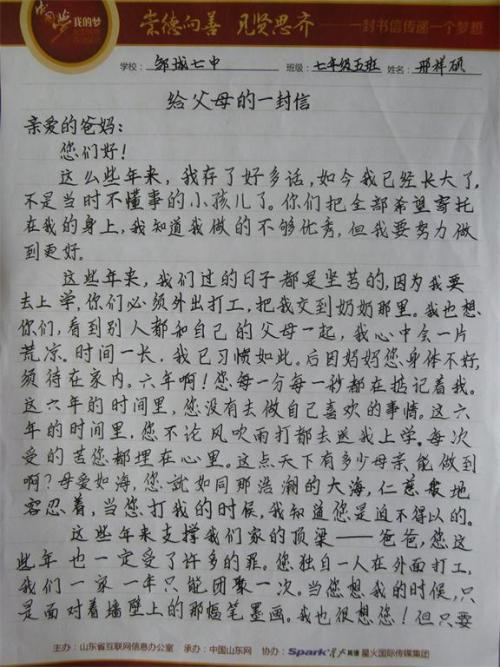 中国梦 我的梦
崇德向善 见贤思齐 一封书信传递一个梦想
学校: 邹城七中 班级: 七年级五班 姓名: 邢祥硕
给父母的一封信
亲爱的爸妈:
您们好!
这么些年来,我存了好多话,如今我已经长大了,
不是当时不懂事的小孩儿了。你们把全部希望寄托
在我的身上,我知道我做的不够优秀,但我要努力做
到更好。
这些年来,我们过的日子都是坚苦的,因为我要
去上学,你们必须外出打工,把我交到奶奶那里。我也想
你们,看到别人都和自己的父母一起,我心中会一片
荒凉。时间一长,我已习惯如此。后因妈妈您身体不好,
须待在家内。六年啊!您每一分每一秒都在掂记着我。
这六年的时间里,您没有去做自己喜欢的事情。这六
年的时间里,您不论风吹雨打都去送我上学。每次
受的苦您都埋在心里。这点天下有多少母亲能做到
啊?母爱如海,您就如同那浩澜的大海,仁慈般地
容忍着,当您打我的时候,我知道您是迫不得以的。
这些年来支撑我们家的顶梁——爸爸,您这
些年也一定受了许多的罪。您独自一人在外面打工,
我们一家一年只能团聚一次。当您想我的时候,只
是面对着墙壁上的那幅笔墨画。我也很想您!但只要
主办:山东省互联网信息办公室 承办:中国山东网 协办: Spark 星火英语 星火国际传媒集团